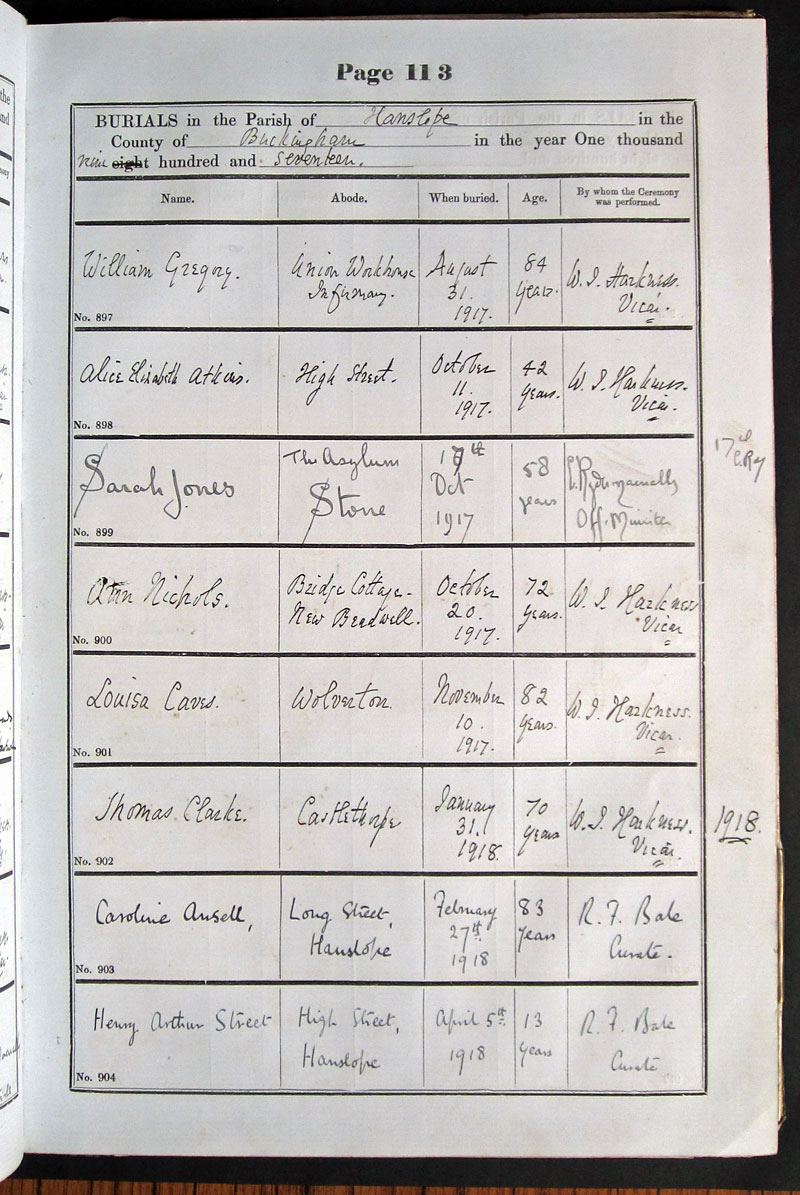 Page 113
BURIALS in the Parish of Hanslope in the
County of Buckingham in the year One thousand
nine eight hundred and seventeen.
Name. Abode. When buried. Age. By whom the Ceremony
was performed.
William Gregory. Union Workhouse August 84 W. J. Harkness.
Infirmary. 31. years. Vicar.
No. 897 1917.
Alice Elizabeth Atkins. High Street. October 42 W. J. Harkness.
11. years. Vicar.
No. 898 1917.
Sarah Jones The Asylum 17th 58
Stone Oct years Off. Minister
No. 899 1917
17
Ann Nichols. Bridge Cottage- October 72 W. J. Harkness
New Bradwell. 20. years. Vicar
No. 900 1917.
Louisa Caves. Wolverton. November 82 W. J. Harkness.
10. years. Vicar.
No. 901 1917.
Thomas Clarke. Castlethorpe January 70 W. J. Harkness. 1918.
31. years Vicar.
No. 902 1918.
Caroline Ansell, Long Street, February 83 R. F. Bale
Hanslope 27th years Curate.
No. 903 1918
Henry Arthur Street High Street, April 5th 13 R. F. Bale
Hanslope 1918 years Curate
No. 904